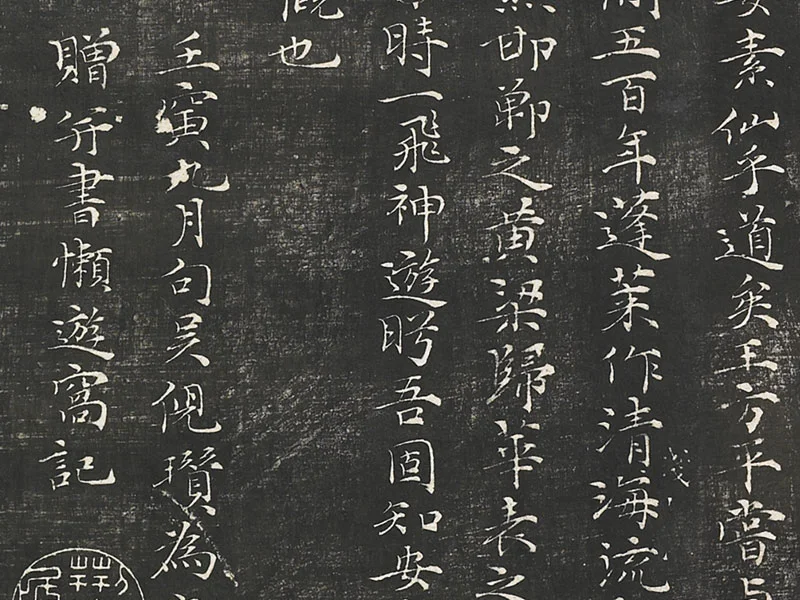 素仙乎道矣王方平嘗与
五百年蓬莱作清海流
邯鄲之黄梁歸華表之
時一飛神遊盻吾固知安
也
壬寅九月句吴倪瓚為
贈行書懶遊窩記